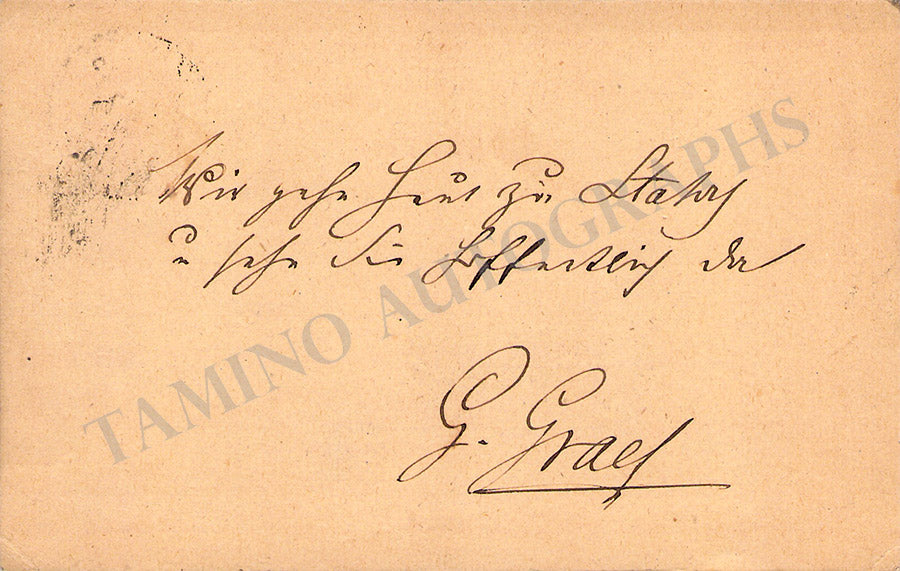 Wir gehn heut zu Stahrs
u sehn Sie hoffentlich da
G. Graef
TAMINO AUTOGRAPHS